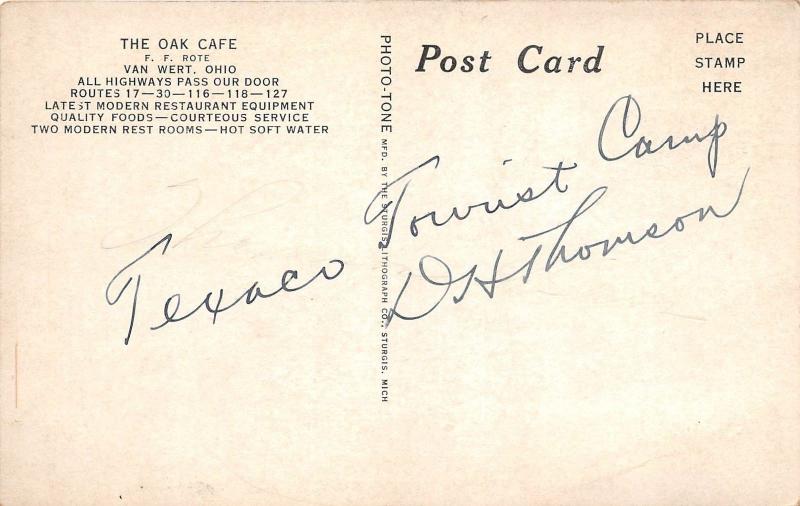 THE OAK CAFE
F. F. ROTE
VAN WERT, OHIO
ALL HIGHWAYS PASS OUR DOOR
ROUTES 17—30—116—118—127
LATEST MODERN RESTAURANT EQUIPMENT
QUALITY FOODS—COURTEOUS SERVICE
TWO MODERN REST ROOMS—HOT SOFT WATER
PHOTO-TONE MFD. BY THE STURGIS LITHOGRAPH CO., STURGIS, MICH
Post Card
PLACE
STAMP
HERE
Texaco Tourist Camp
D H Thomson